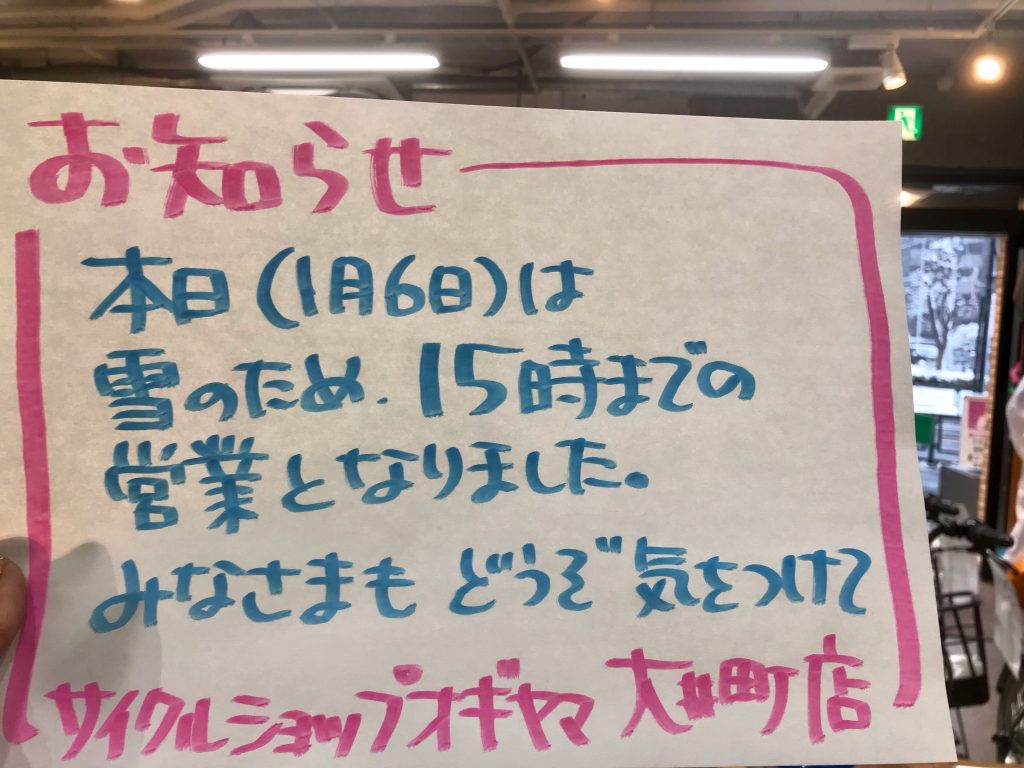 お知らせ
本日(1月6日)は
雪のため、15時までの
営業となりました。
みなさまも どうぞ気をつけて
サイクルショップオギヤマ 大井町店